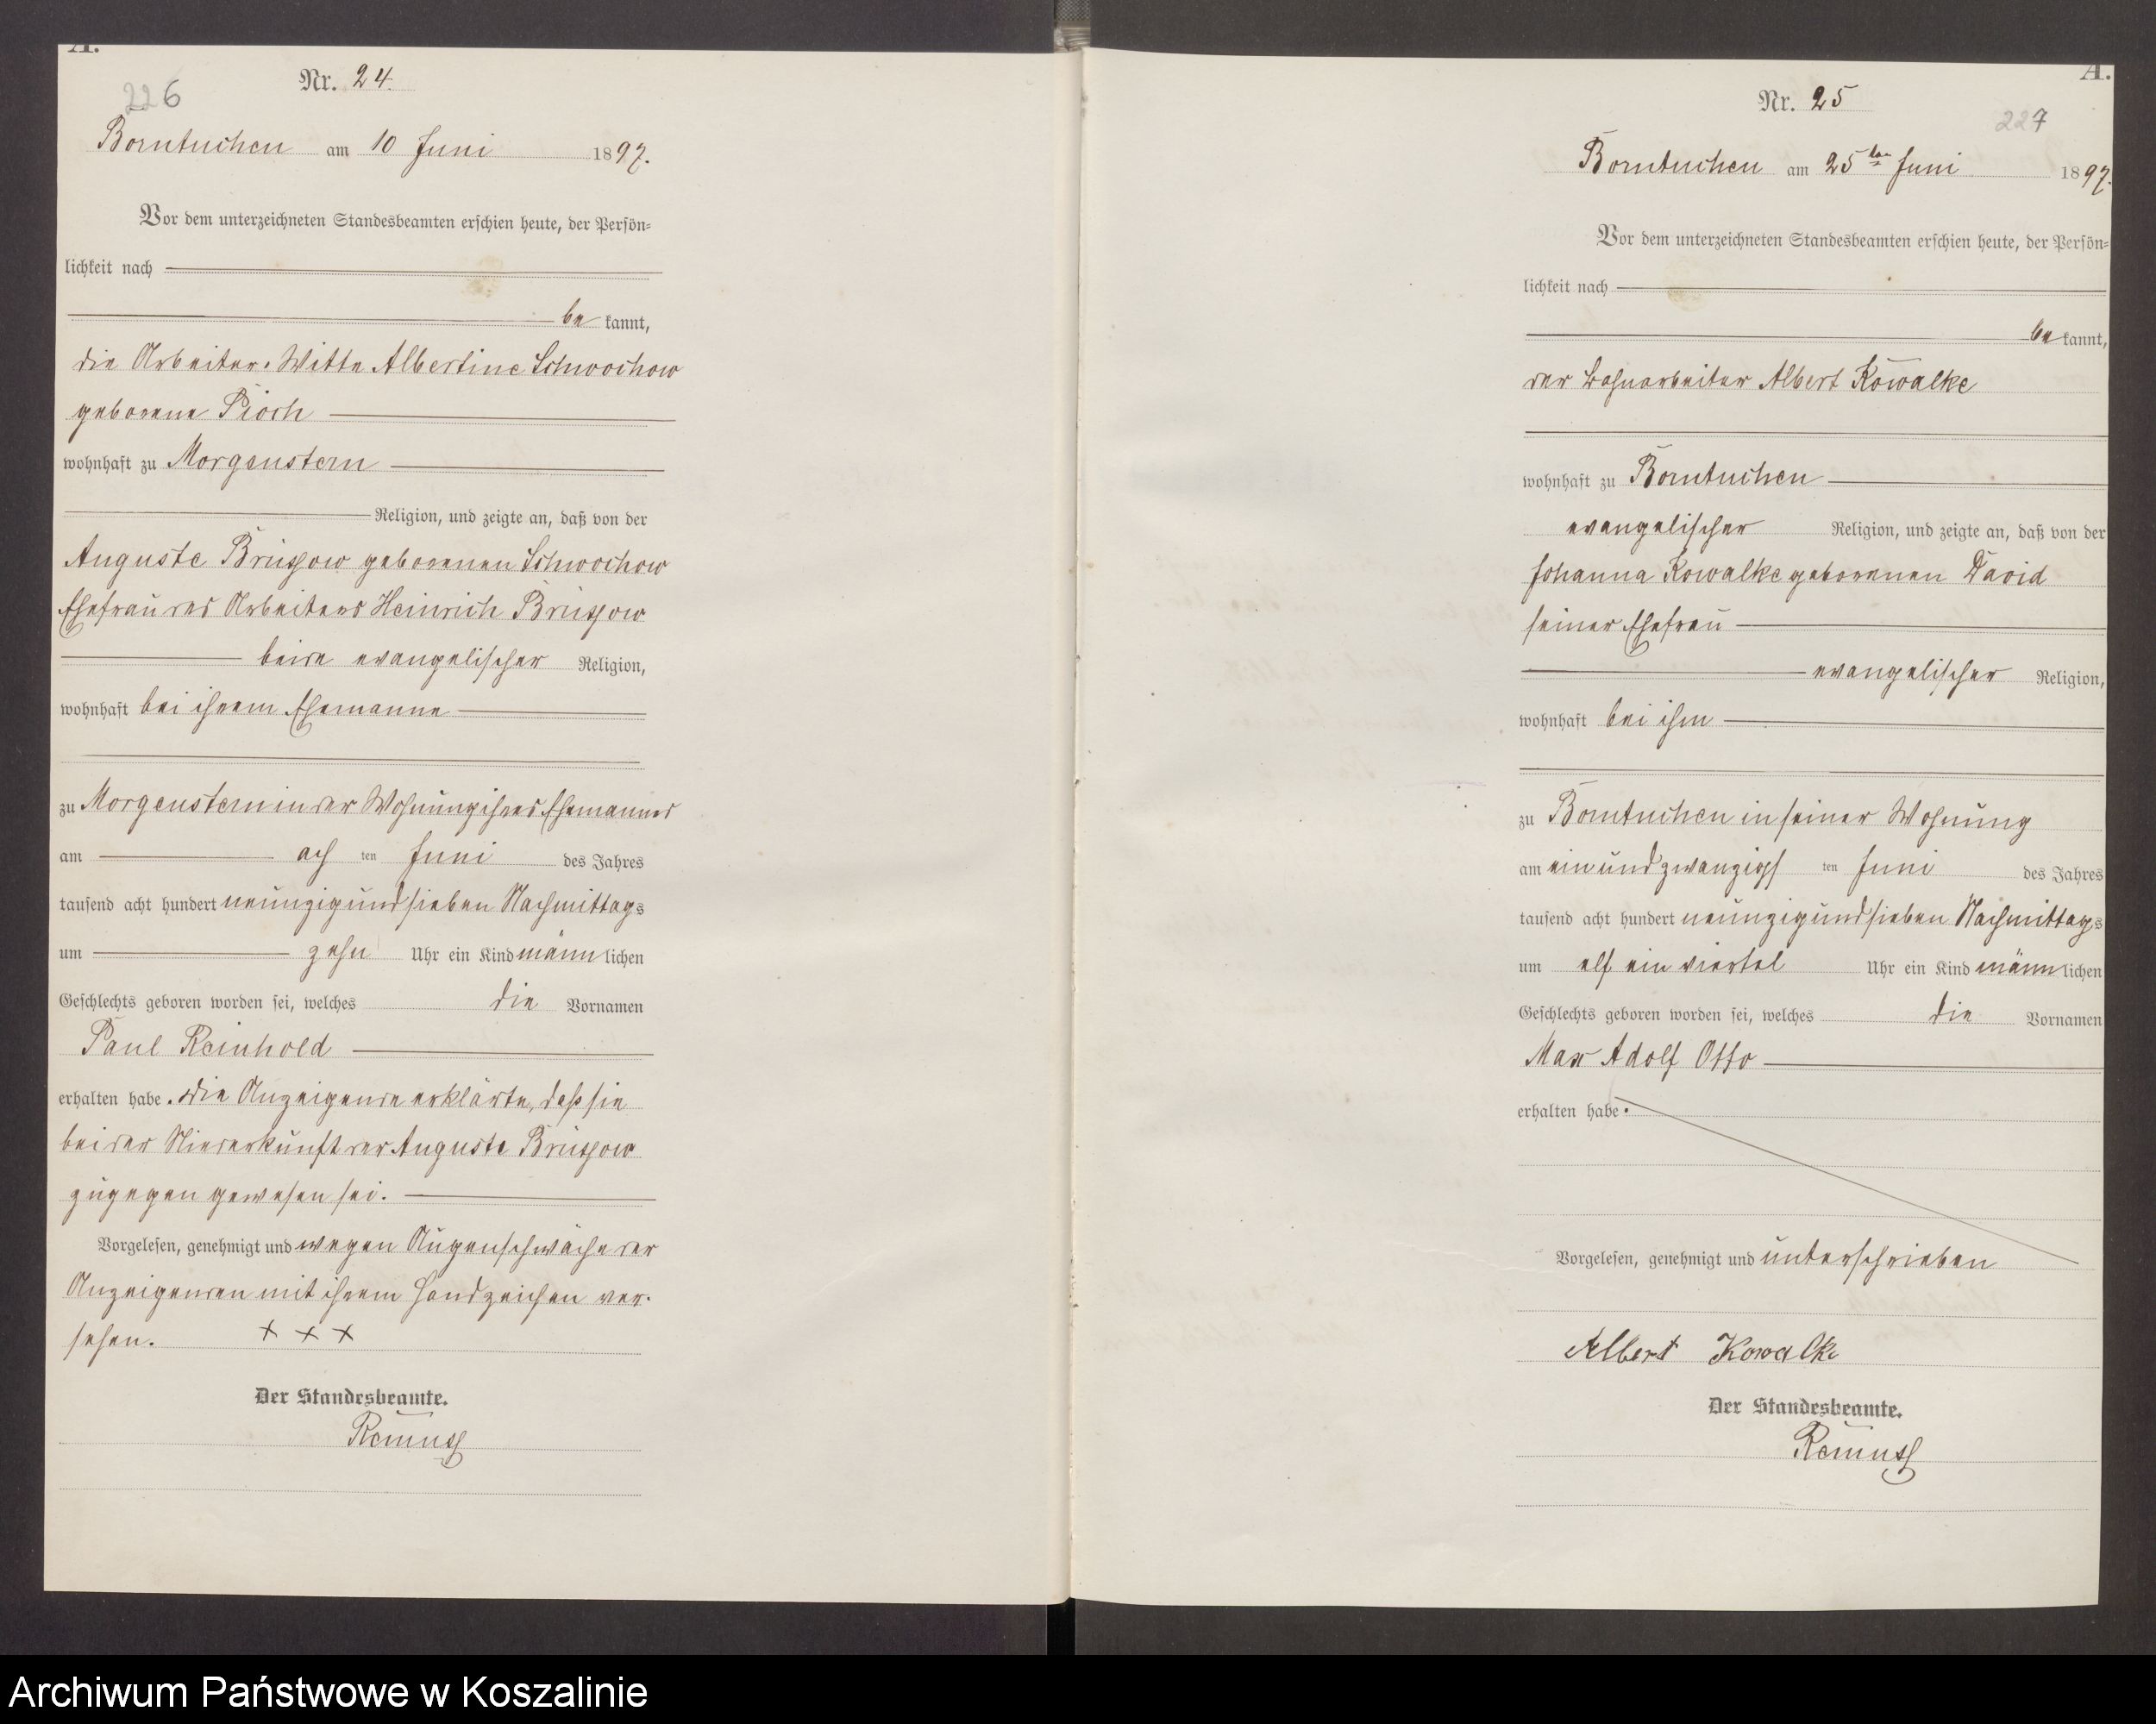 A.
226
Nr. 24.
Borntuchen am 10 Juni 1897.
Vor dem unterzeichneten Standesbeamten erschien heute, der Persön=
lichkeit nach
be kannt,
die Arbeiter-Witte Albertine Schwochow
geborene Pioch
wohnhaft zu Morgenstern
Religion, und zeigte an, daß von der
Auguste Brüssow geborenen Schwochow
Ehefrau des Arbeiters Heinrich Brüssow
beide evangelischer Religion,
wohnhaft bei ihrem Ehemanne
zu Morgenstern in der Wohnung ihres Ehemannes
am ach ten Juni des Jahres
tausend acht hundert neunzig und sieben Nachmittags
um zehn Uhr ein Kind männlichen
Geschlechts geboren worden sei, welches die Vornamen
Paul Reinhold
erhalten habe. Die Anzeigende erklärte, daß sie
bei der Niederkunft der Auguste Brüssow
zugegen gewesen sei.
Vorgelesen, genehmigt und wegen Augenschwäche der
Anzeigenden mit ihrem Handzeichen ver-
sehen. + + +
Der Standesbeamte.
A.
Nr. 25
227
Borntuchen am 25ten Juni 1897.
Vor dem unterzeichneten Standesbeamten erschien heute, der Persön=
lichkeit nach
be kannt,
der Bahnarbeiter Albert Kowalke
wohnhaft zu Borntuchen
evangelischer Religion, und zeigte an, daß von der
Johanna Kowalke geborenen David
seiner Ehefrau
evangelischer Religion,
wohnhaft bei ihm
zu Borntuchen in seiner Wohnung
am ein und zwanzigs ten Juni des Jahres
tausend acht hundert neunzig und sieben Nachmittags
um elf ein viertel Uhr ein Kind männlichen
Geschlechts geboren worden sei, welches die Vornamen
Max Adolf Otto
erhalten habe.
Vorgelesen, genehmigt und unterschrieben
Albert Kowalke
Der Standesbeamte.
Archiwum Państwowe w Koszalinie